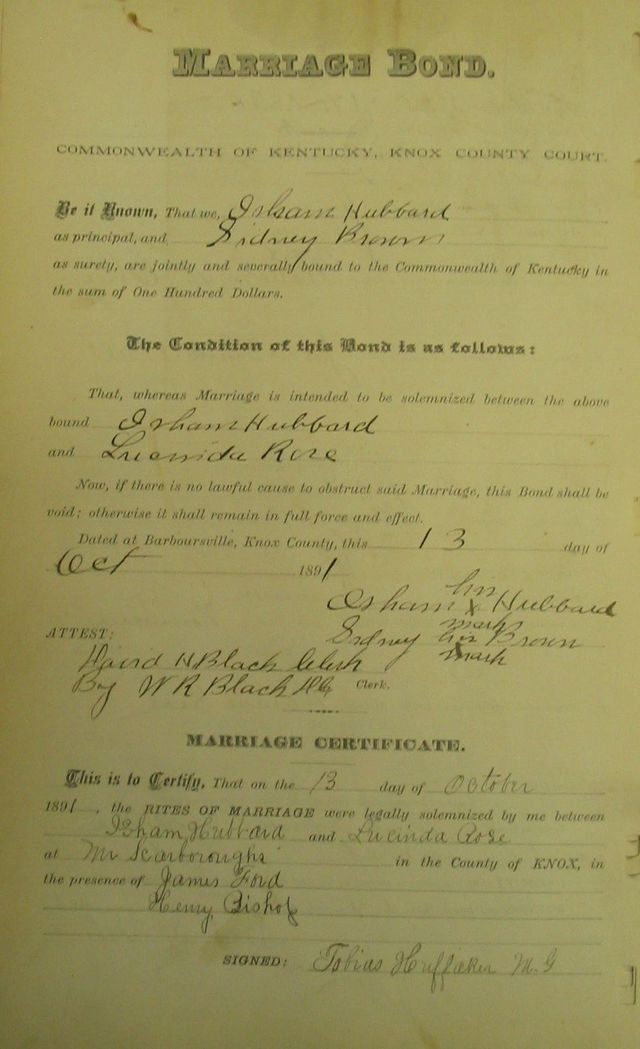 MARRIAGE BOND.
COMMONWEALTH OF KENTUCKY, KNOX COUNTY COURT.
Be it Known, That we, Isham Hubbard
as principal, and Sidney Brown
as surety, are jointly and severally bound to the Commonwealth of Kentucky in
the sum of One Hundred Dollars.
The Condition of this Bond is as follows:
That, whereas Marriage is intended to be solemnized between the above
bound Isham Hubbard
and Lucinda Rose
Now, if there is no lawful cause to obstruct said Marriage, this Bond shall be
void; otherwise it shall remain in full force and effect.
Dated at Barboursville, Knox County, this 13 day of
Oct 1891
his
Isham X Hubbard
mark
ATTEST: Sidney his Brown
X
mark
David H Black Clerk
By W R Black DC Clerk.
MARRIAGE CERTIFICATE.
This is to Certify, That on the 13 day of October
1891, the RITES OF MARRIAGE were legally solemnized by me between
Isham Hubbard and Lucinda Rose
at Mr Scarboroughs in the County of KNOX, in
the presence of James Ford
Henry Bishop
SIGNED: Tobias Huffaker M.G